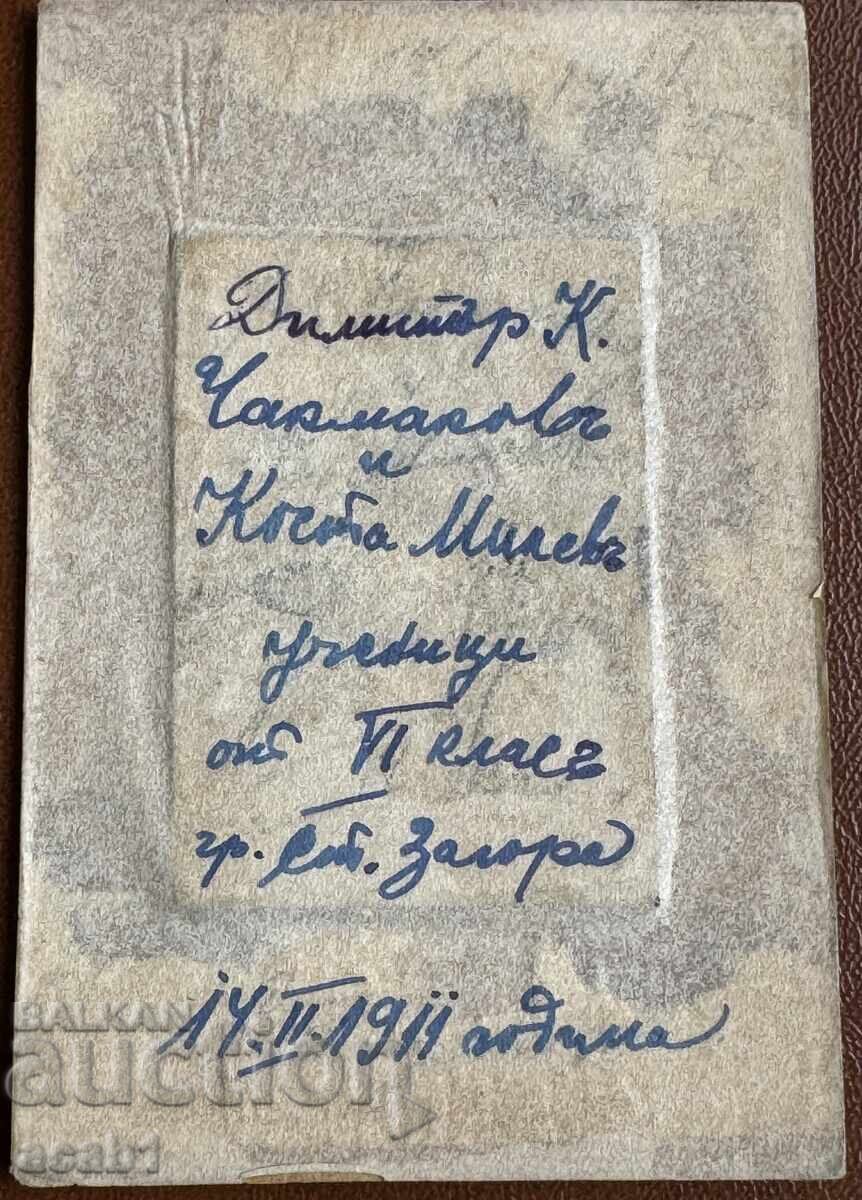 Димитър К.
Чакмаковъ
и
Коста Милевъ
ученици
от VI класъ
гр. Ст. Загора
14.II.1911 година
BALKAN
auction
acab1